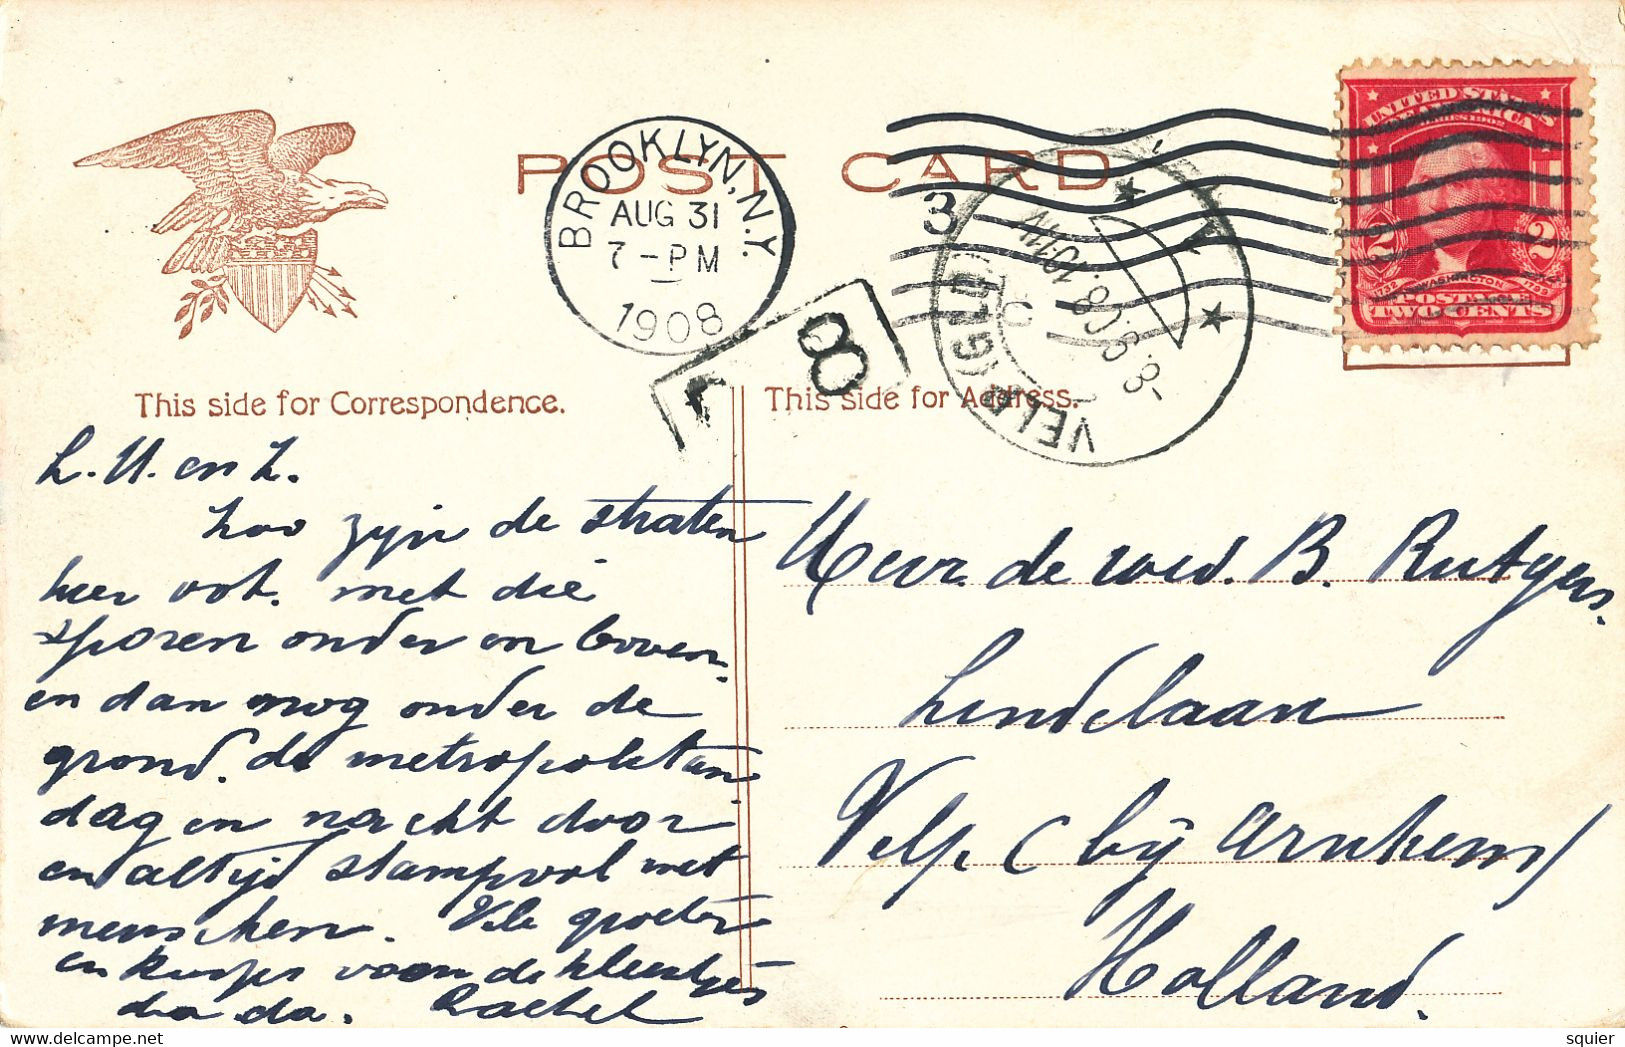 POST CARD
BROOKLYN, N.Y.
AUG 31
7-PM
1908
3
8
VELP (GLD)
UNITED STATES
OF AMERICA
SERIES 1902
2 2
1732 WASHINGTON 1799
POSTAGE
TWO CENTS
This side for Correspondence.
This side for Address.
L. U. en L.
Zoo zyn de straten
hier ook. met die
sporen onder en boven.
en dan nog onder de
grond. de metropolitan
dag en nacht door
en altijd stampvol met
menschen. Vele groeten
en kusjes voor de kleentjes
da da. Rachel
Mevr. de wed. B. Rutgers.
Lindelaan
Velp (bij Arnhem)
Holland.
delcampe.net
squier